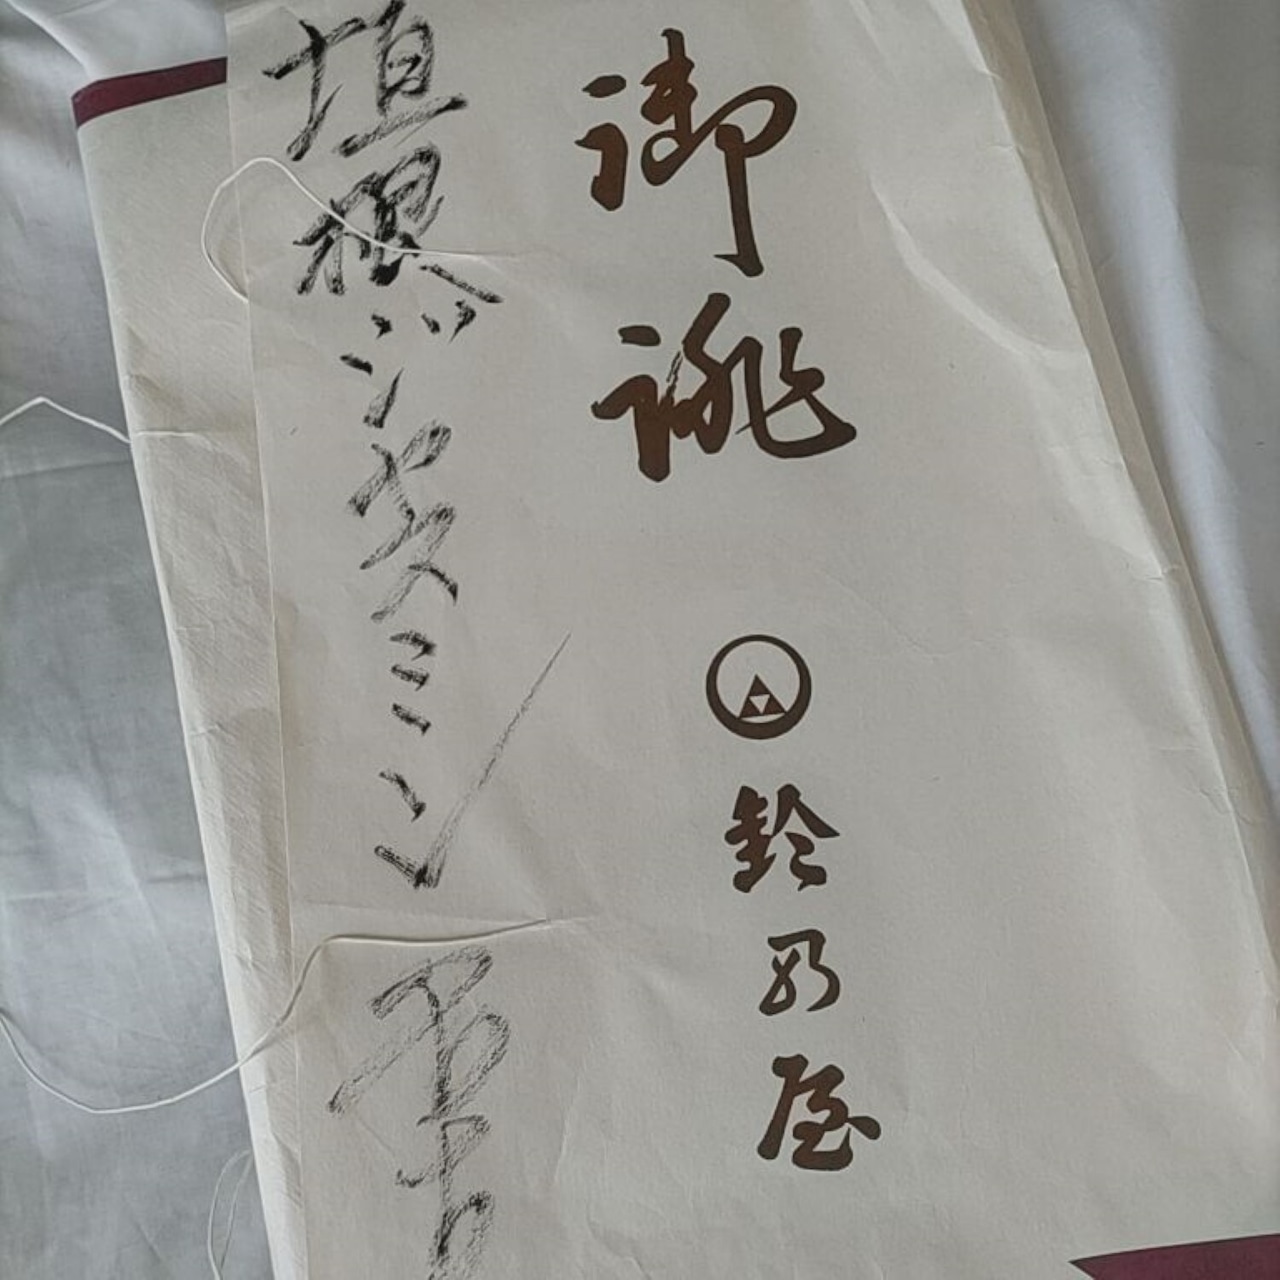 御誂
鈴乃屋
垣根ジャスミン